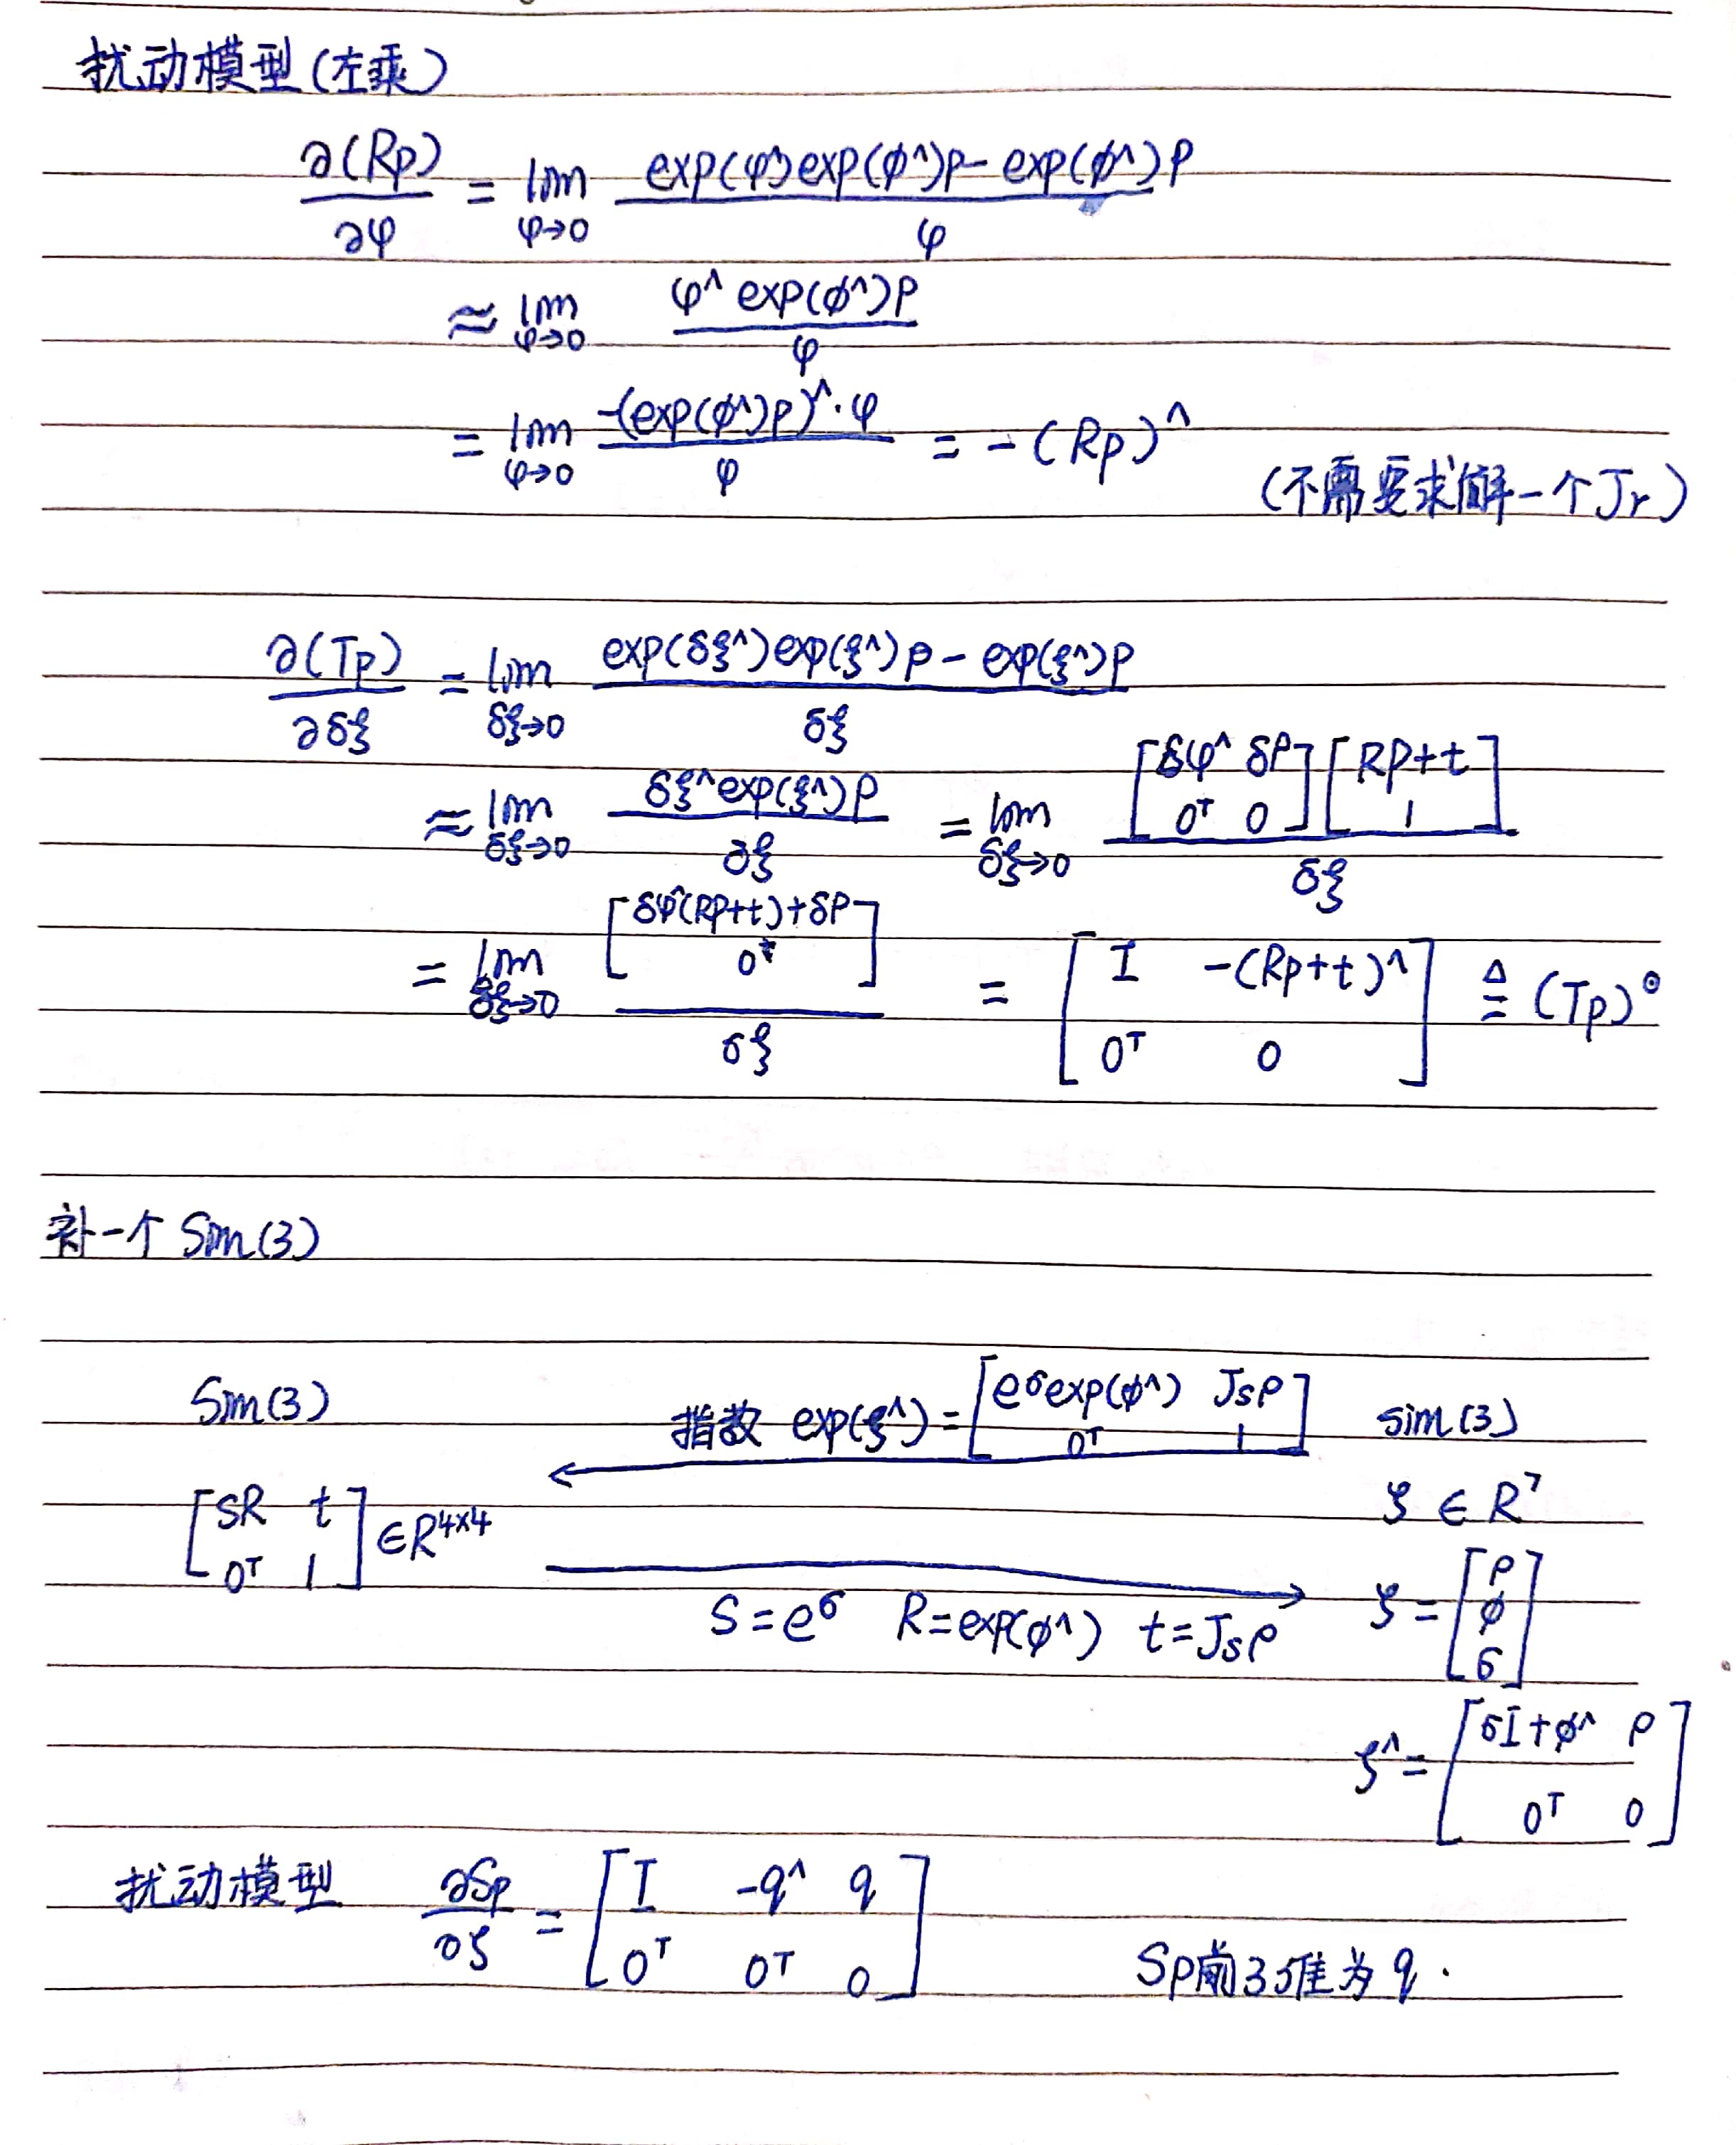 扰动模型(左乘)
∂(Rp)/∂φ = lim φ→0 (exp(φ^)exp(ϕ^)p - exp(ϕ^)p)/φ
≈ lim φ→0 (φ^ exp(ϕ^)p)/φ
= lim φ→0 (-(exp(ϕ^)p)^·φ)/φ = -(Rp)^
(不需要求解一个Jr)
∂(Tp)/∂δξ = lim δξ→0 (exp(δξ^)exp(ξ^)p - exp(ξ^)p)/δξ
≈ lim δξ→0 (δξ^exp(ξ^)p)/∂ξ = lim δξ→0 ([δφ^ δρ; 0ᵀ 0][Rp+t; 1])/δξ
= lim δξ→0 ([δφ^(Rp+t)+δρ; 0ᵀ])/δξ = [I -(Rp+t)^; 0ᵀ 0] ≜ (Tp)^⊙
补一个 Sim(3)
Sim(3) 指数 exp(ξ^)=[e^σexp(ϕ^) Jsρ; 0ᵀ 1] sim(3)
[sR t; 0ᵀ 1] ∈R^4×4 ζ ∈ R^7
S=e^σ R=exp(ϕ^) t=Jsρ ζ=[ρ; ϕ; σ]
ζ^=[σI+ϕ^ ρ; 0ᵀ 0]
扰动模型 ∂Sp/∂ζ = [I -q^ q; 0ᵀ 0ᵀ 0]
Sp前3维为q.